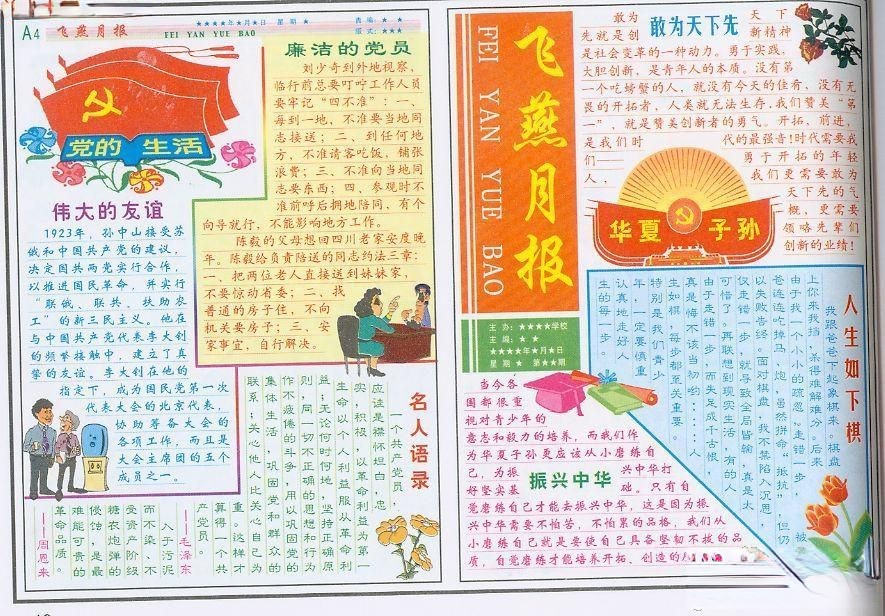 A4 飞燕月报
FEI YAN YUE BAO
★★★★年★月★日 星期 ★
责编：★ ★
版式：★★★
党的生活
廉洁的党员
刘少奇到外地视察，
临行前总要叮咛工作人员
要牢记“四不准”：一、
每到一地，不准要当地同
志接送；二、到任何地
方，不准请客吃饭，铺张
浪费；三、不准向当地同
志要东西；四、参观时不
准前呼后拥地陪同，有个
向导就行，不能影响地方工作。
陈毅的父母想回四川老家安度晚
年。陈毅给负责陪送的同志约法三章：
一、把两位老人直接送利妹妹家，
不要惊动省委；二、找
普通的房子住，不向
机关要房子；三、安
家事宜，自行解决。
伟大的友谊
1923年，孙中山接受苏
俄和中国共产党的建议，
决定国共两党实行合作，
以推进国民革命，并实行
“联俄、联共、扶助农
工”的新三民主义。他在
与中国共产党代表李大钊
的频繁接触中，建立了真
挚的友谊。李大钊在他的
指定下，成为国民党第一次
代表大会的北京代表，
协助筹备大会的
各项工作，而且是
大会主席团的五个
成员之一。
名人语录
一个共产党员，
应该是襟怀坦白，忠
实，积极，以革命利益为第一
生命以个人利益服从革命利
益；无论何时何地，坚持正确原
则，同一切不正确的思想和行为
作不疲倦的斗争，用以巩固党的
集体生活，巩固党和群众的
联系；关心他人比关心自己为
重。这样才
算得一个共
产党员。
——毛泽东
入于污泥
而不染、不
受资产阶级
糖衣炮弹的
侵蚀，是最
难能可贵的
革命品质。
——周恩来
飞燕月报
FEI YAN YUE BAO
主办：★★★★学校
主编：★ ★
★★★★年★月★日
星期 ★ 第★★期
敢为天下先
敢为天下
先就是创新精神
是社会变革的一种动力。勇于实践，
大胆创新，是青年人的本质。没有第
一个吃螃蟹的人，就没有今天的佳肴，没有无
畏的开拓者，人类就无法生存，我们赞美“第
一”，就是赞美创新者的勇气。开拓，前进，
是我们时代的最强音！时代需要我
们——勇于开拓的年轻
人，我们更需要敢为
天下先的气
概，更需要
领略先辈们
创新的业绩！
华夏子孙
人生如下棋
我跟爸爸下起象棋来。棋盘
上你来我挡，杀得难解难分。后来
由于我一个小小的疏忽，走错一步，被爸
爸连连吃掉马、炮，虽然拼命“抵抗”，但仍
以失败告终。面对棋盘，我不禁陷入沉思，
仅走错一步，就导致全局皆输，真是太
可惜了。再联想到现实生活，有的人
由于走错一步，而失足成千古恨，
真是悔不该当初哟……人
生如棋，每步都至关重要。
特别是我们青少
年，一定要慎重
认真地走好人
生的每一步。
振兴中华
当今各
国都很重
视对青少年的
意志和毅力的培养，而我们作
为华夏子孙更应该从小磨练自
己，为振兴中华打
好坚实基础。只有自
觉磨练自己才能去振兴中华，这是因为振
兴中华需要不怕苦，不怕累的品格，我们从
小磨练自己就是要使自己具备坚韧不拔的品
质，自觉磨练才能培养开拓、创造的人